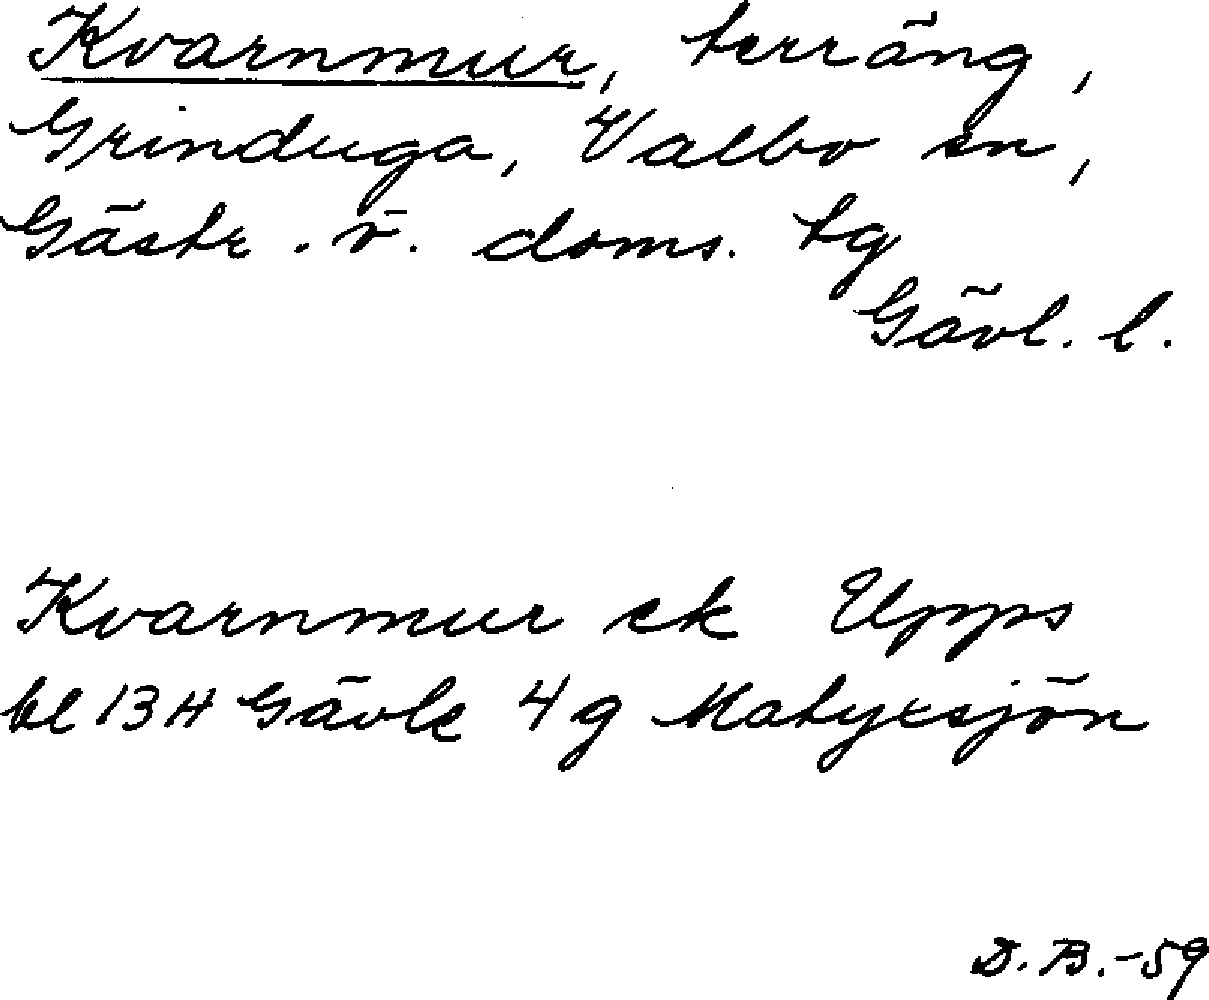 Kvarnmur, terräng,
Grinduga, Valbo sn,
Gästr. v. doms. tg
Gävl. l.
Kvarnmur ek Upps
bl 13 H Gävle 4 g Matyxsjön
D. B. -59